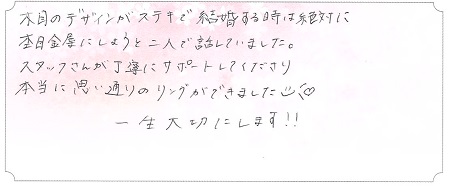 木目のデザインがステキで結婚する時は絶対に
杢目金屋にしようと二人で話していました。
スタッフさんが丁寧にサポートしてくださり
本当に思い通りのリングができました
一生大切にします!!